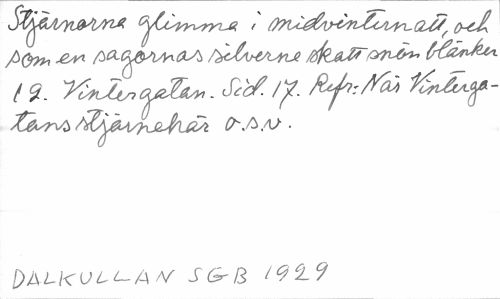 Stjärnorna glimma i midvinternatt, och
som en sagornas silverne skatt snön blänker
19. Vintergatan. Sid. 17. Refr: När Vinterga-
tans stjärnehär o.s.v.
DALKULLAN SGB 1929